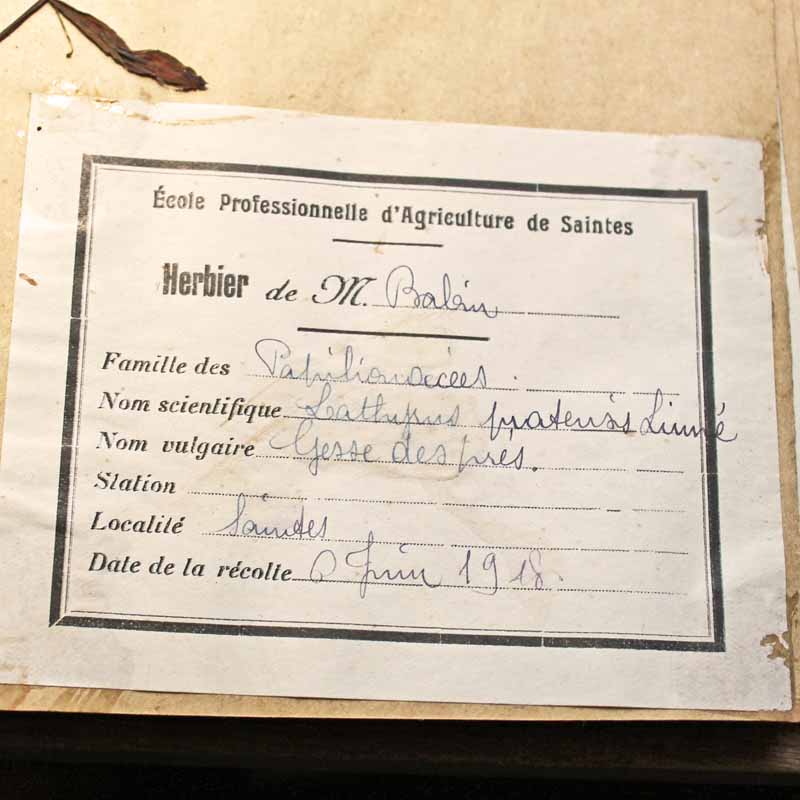 École Professionnelle d'Agriculture de Saintes
Herbier de M. Balin
Famille des Papilionacées.
Nom scientifique Lathyrus pratensis Linné
Nom vulgaire Gesse des prés.
Station
Localité Saintes
Date de la récolte Juin 1918.